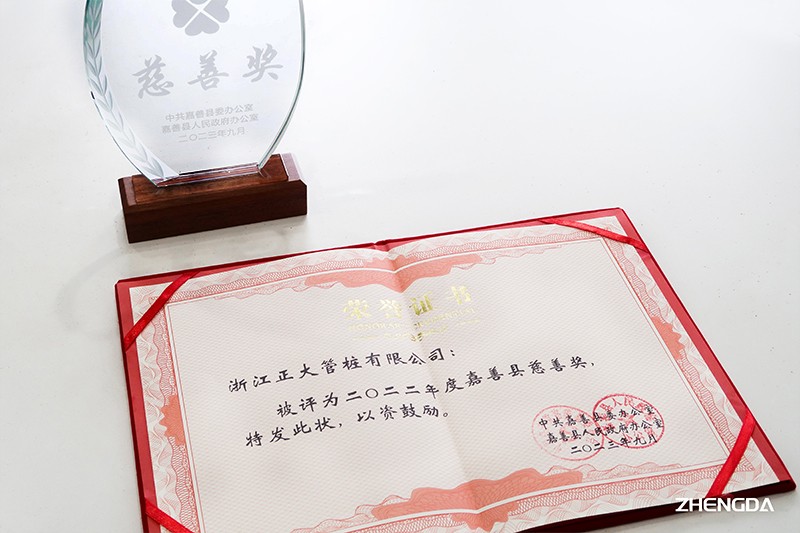 慈善奖
中共嘉善县委办公室
嘉善县人民政府办公室
二〇二三年九月
荣誉证书
浙江正大管桩有限公司：
被评为二〇二二年度嘉善县慈善奖，
特发此状，以资鼓励。
中共嘉善县委办公室
嘉善县人民政府办公室
二〇二三年九月
ZHENGDA